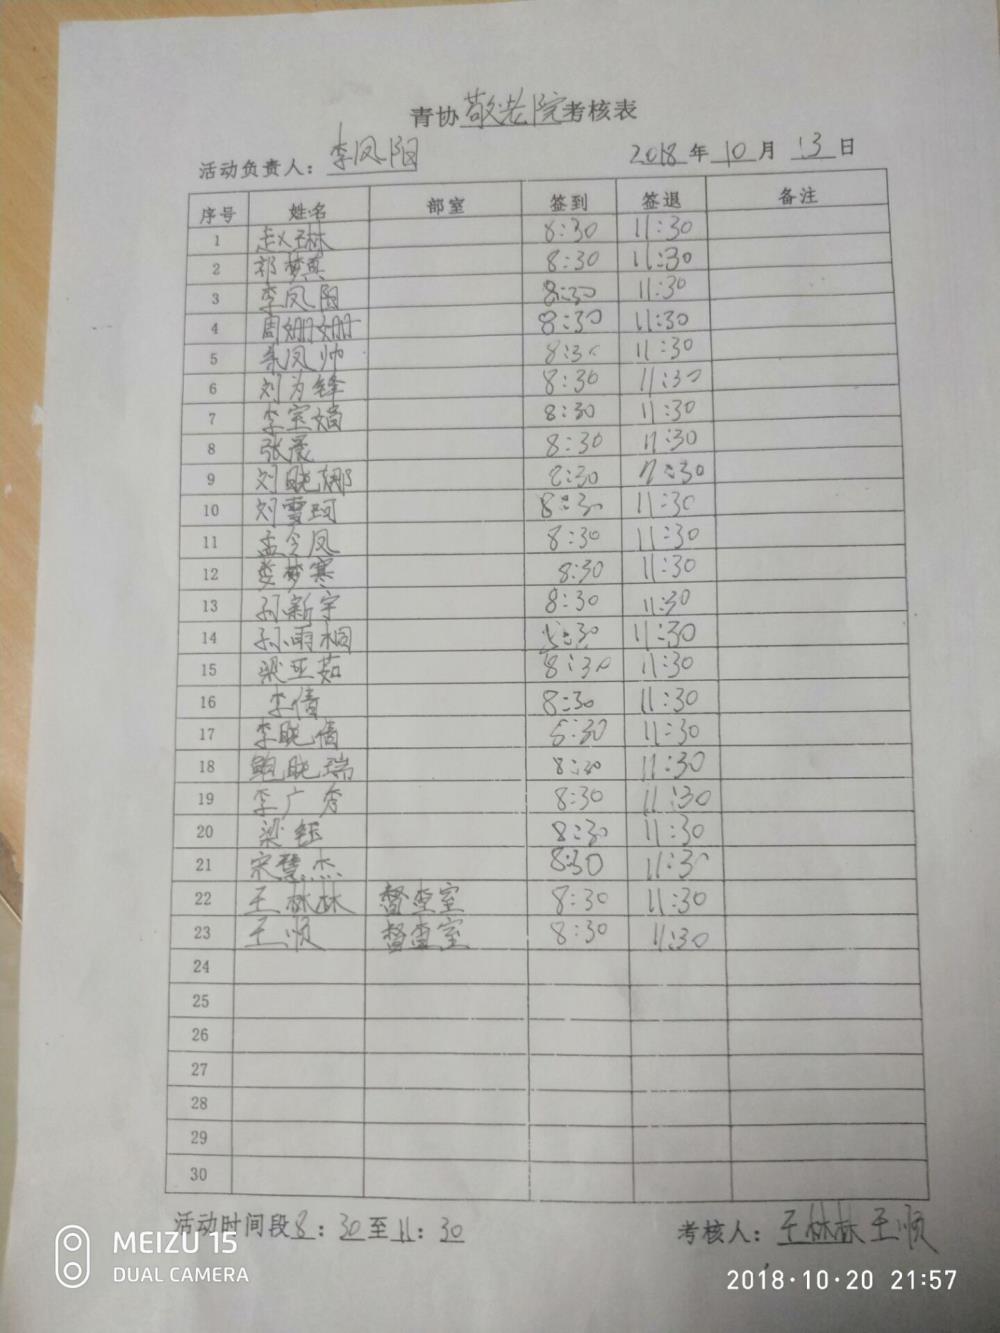 青协敬老院考核表
活动负责人：李凤阳 2018年10月13日
序号 姓名 部室 签到 签退 备注
1 赵琳 8:30 11:30
2 祁梦真 8:30 11:30
3 李凤阳 8:30 11:30
4 周姗姗 8:30 11:30
5 凤帅 8:30 11:30
6 刘为锋 8:30 11:30
7 李宝嫡 8:30 11:30
8 张晨 8:30 11:30
9 刘晓娜 8:30 11:30
10 刘雪珂 8:30 11:30
11 孟令凤 8:30 11:30
12 娄梦寒 8:30 11:30
13 孙新宇 8:30 11:30
14 孙雨桐 8:30 11:30
15 梁亚茹 8:30 11:30
16 李倩 8:30 11:30
17 李晓倩 8:30 11:30
18 鲍晓瑞 8:30 11:30
19 李广秀 8:30 11:30
20 梁钰 8:30 11:30
21 宋慧杰 8:30 11:30
22 王林林 督查室 8:30 11:30
23 王顺 督查室 8:30 11:30
24
25
26
27
28
29
30
活动时间段8：30至11：30 考核人：王林林 王顺
MEIZU 15
DUAL CAMERA
2018·10·20 21:57